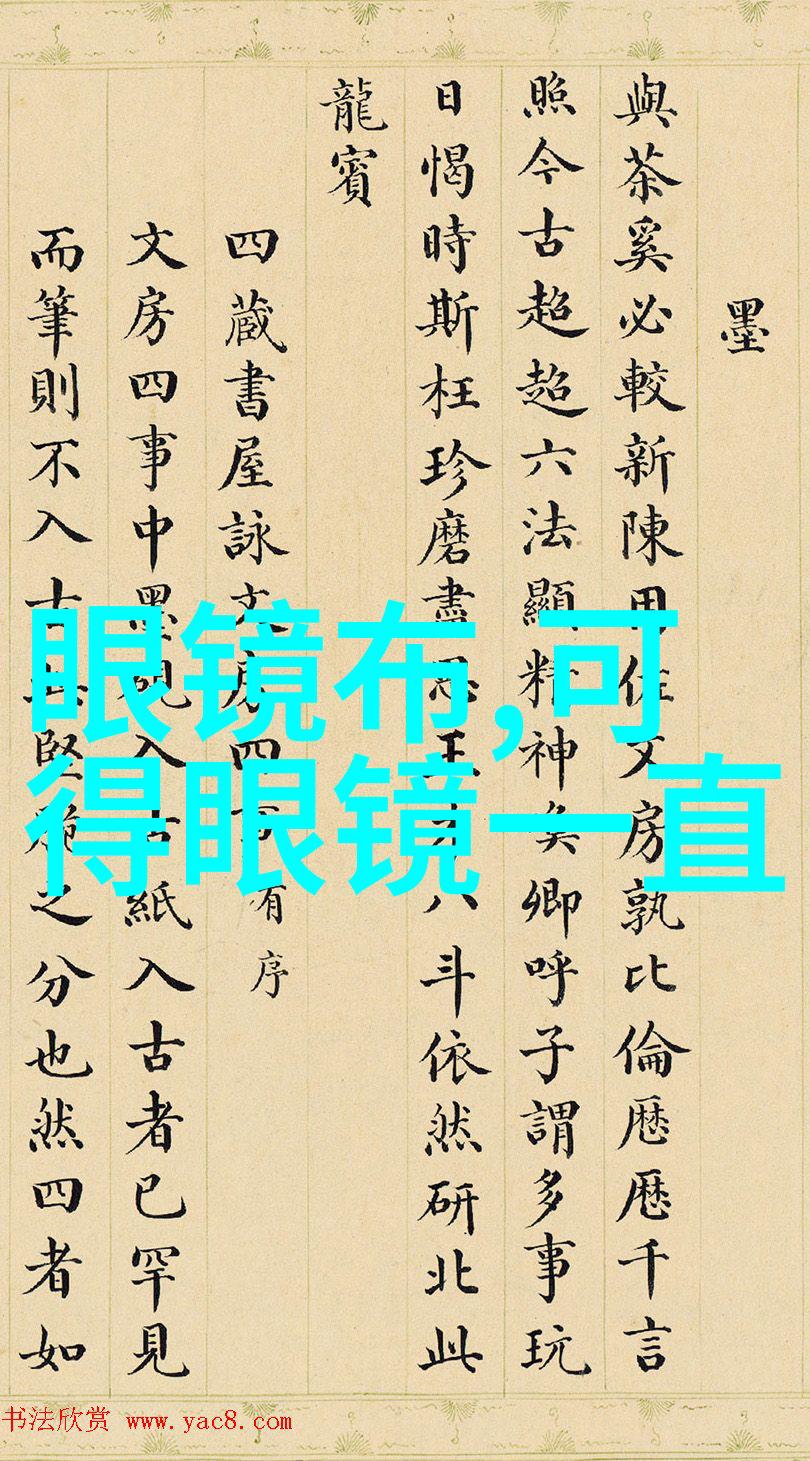 墨
與茶奚必較新陳用佐文房孰比倫厯厯千言
照今古超超六法顯精神矣卿呼子謂多事玩
日愒時斯枉珍磨盡思王才八斗依然研北此
龍賓
四蔵書屋詠文房四事有序
文房四事中墨硯入古紙入古者已罕見
而筆則不入古堅脆之分也然四者如
眼镜布,可
得眼镜一直
书法欣赏 www.yac8.com